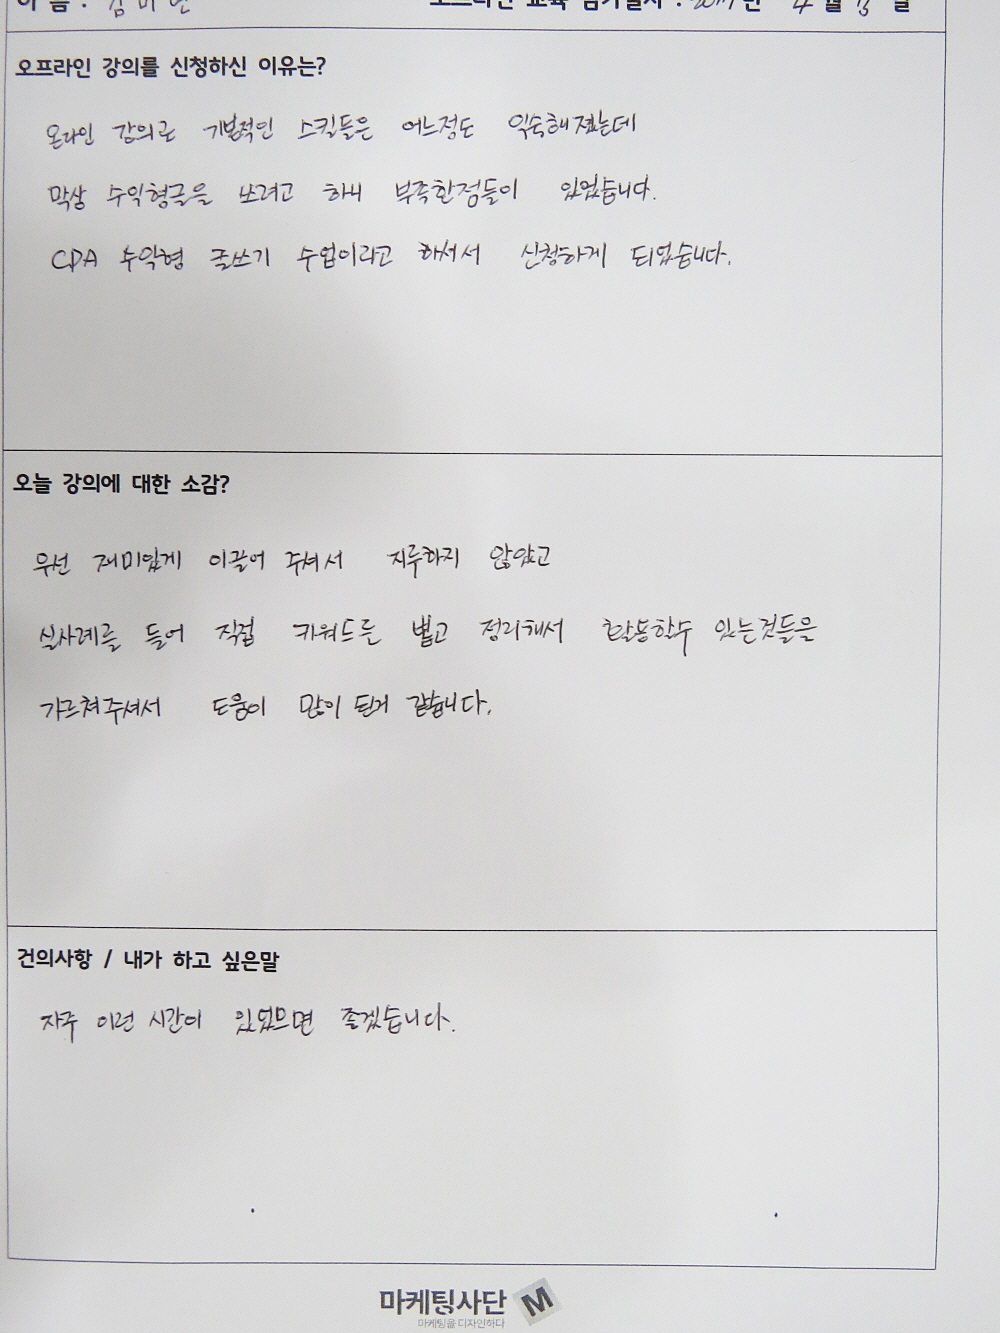 오프라인 강의를 신청하신 이유는?
온라인 강의로 기본적인 스킬들은 어느정도 익숙해졌는데
막상 수익형글을 쓰려고 하니 부족한점들이 있었습니다.
CPA 수익형 글쓰기 수업이라고 하셔서 신청하게 되었습니다.
오늘 강의에 대한 소감?
우선 재미있게 이끌어 주셔서 지루하지 않았고
실사례를 들어 직접 키워드를 뽑고 정리해서 활동할수 있는것들을
가르쳐주셔서 도움이 많이 된거 같습니다.
건의사항 / 내가 하고 싶은말
자주 이런 시간이 있었으면 좋겠습니다.
마케팅사단 M
마케팅을 디자인하다